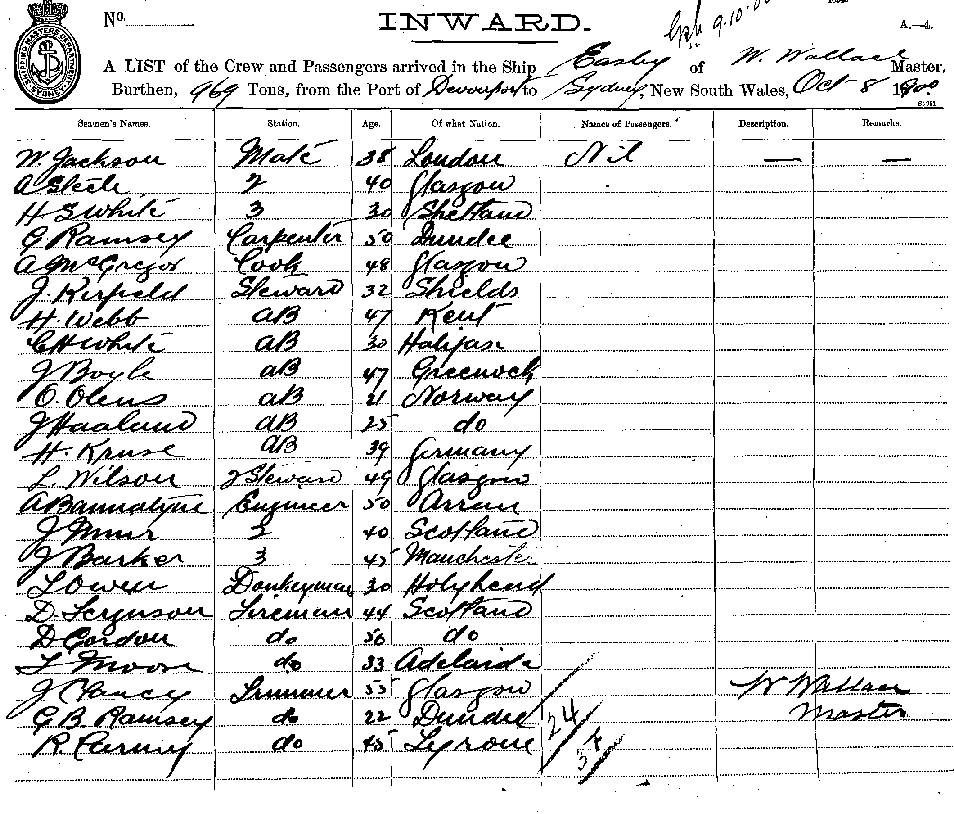 No.
INWARD.
A.—4.
A LIST of the Crew and Passengers arrived in the Ship Easby of W. Wallace Master,
Burthen, 969 Tons, from the Port of Devonport to Sydney, New South Wales, Oct 8 1900
Seamen's Names. Station. Age. Of what Nation. Names of Passengers. Description. Remarks.
W. Jackson Mate 38 London Nil — —
A Steele 2 40 Glasgow
H S White 3 30 Shetland
G Ramsey Carpenter 50 Dundee
A McGregor Cook 48 Glasgow
J. Kirfield Steward 32 Shields
H. Webb AB 47 Kent
C H White AB 30 Halifax
J Boyle AB 47 Greenock
O. Olens AB 21 Norway
J Haaland AB 25 do
H. Kruse AB 39 Germany
L. Wilson 2 Steward 49 Glasgow
A Bannatyne Engineer 50 Arran
J Muir 2 40 Scotland
J Barker 3 45 Manchester
T Owen Donkeyman 30 Holyhead
D. Ferguson Fireman 44 Scotland
D Gordon do 50 do
T Moore do 33 Adelaide
J Clancy Trimmer 55 Glasgow W Wallace
G. B. Ramsey do 22 Dundee 24 Master
R. do 45 Tyrone